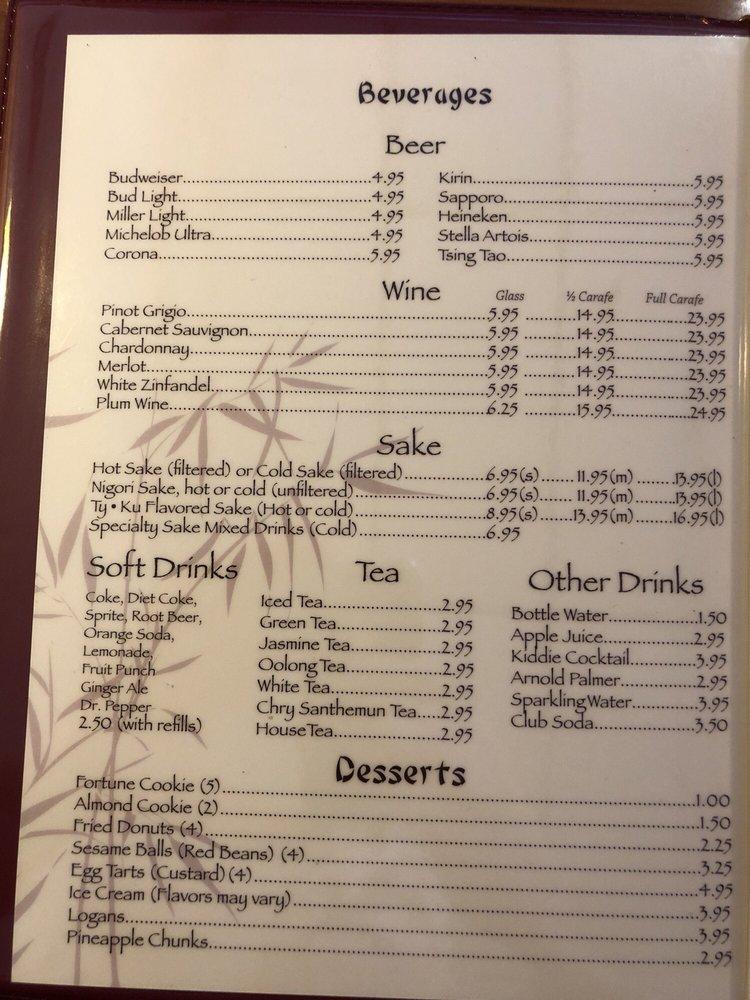 Beverages
Beer
Budweiser..........4.95
Bud Light..........4.95
Miller Light..........4.95
Michelob Ultra..........4.95
Corona..........5.95
Kirin..........5.95
Sapporo..........5.95
Heineken..........5.95
Stella Artois..........5.95
Tsing Tao..........5.95
Wine Glass ½ Carafe Full Carafe
Pinot Grigio..........5.95..........14.95..........23.95
Cabernet Sauvignon..........5.95..........14.95..........23.95
Chardonnay..........5.95..........14.95..........23.95
Merlot..........5.95..........14.95..........23.95
White Zinfandel..........5.95..........14.95..........23.95
Plum Wine..........6.25..........15.95..........24.95
Sake
Hot Sake (filtered) or Cold Sake (filtered)..........6.95(s)........11.95(m)........13.95(l)
Nigori Sake, hot or cold (unfiltered)..........6.95(s)........11.95(m)........13.95(l)
Ty•Ku Flavored Sake (Hot or cold)..........8.95(s)........13.95(m)........16.95(l)
Specialty Sake Mixed Drinks (Cold)..........6.95
Soft Drinks
Coke, Diet Coke,
Sprite, Root Beer,
Orange Soda,
Lemonade,
Fruit Punch
Ginger Ale
Dr. Pepper
2.50 (with refills)
Tea
Iced Tea..........2.95
Green Tea..........2.95
Jasmine Tea..........2.95
Oolong Tea..........2.95
White Tea..........2.95
Chry Santhemun Tea.....2.95
House Tea..........2.95
Other Drinks
Bottle Water..........1.50
Apple Juice..........2.95
Kiddie Cocktail..........3.95
Arnold Palmer..........2.95
Sparkling Water..........3.95
Club Soda..........3.50
Desserts
Fortune Cookie (5)..........1.00
Almond Cookie (2)..........1.50
Fried Donuts (4)..........2.25
Sesame Balls (Red Beans) (4)..........3.25
Egg Tarts (Custard) (4)..........4.95
Ice Cream (Flavors may vary)..........3.95
Logans..........3.95
Pineapple Chunks..........2.95